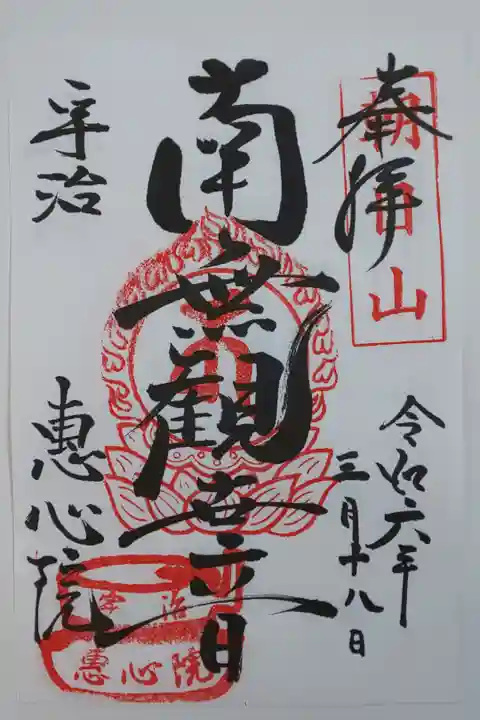 奉拝
朝日山
令和六年
三月十八日
南無観世音
宇治
恵心院
宇治
惠心院